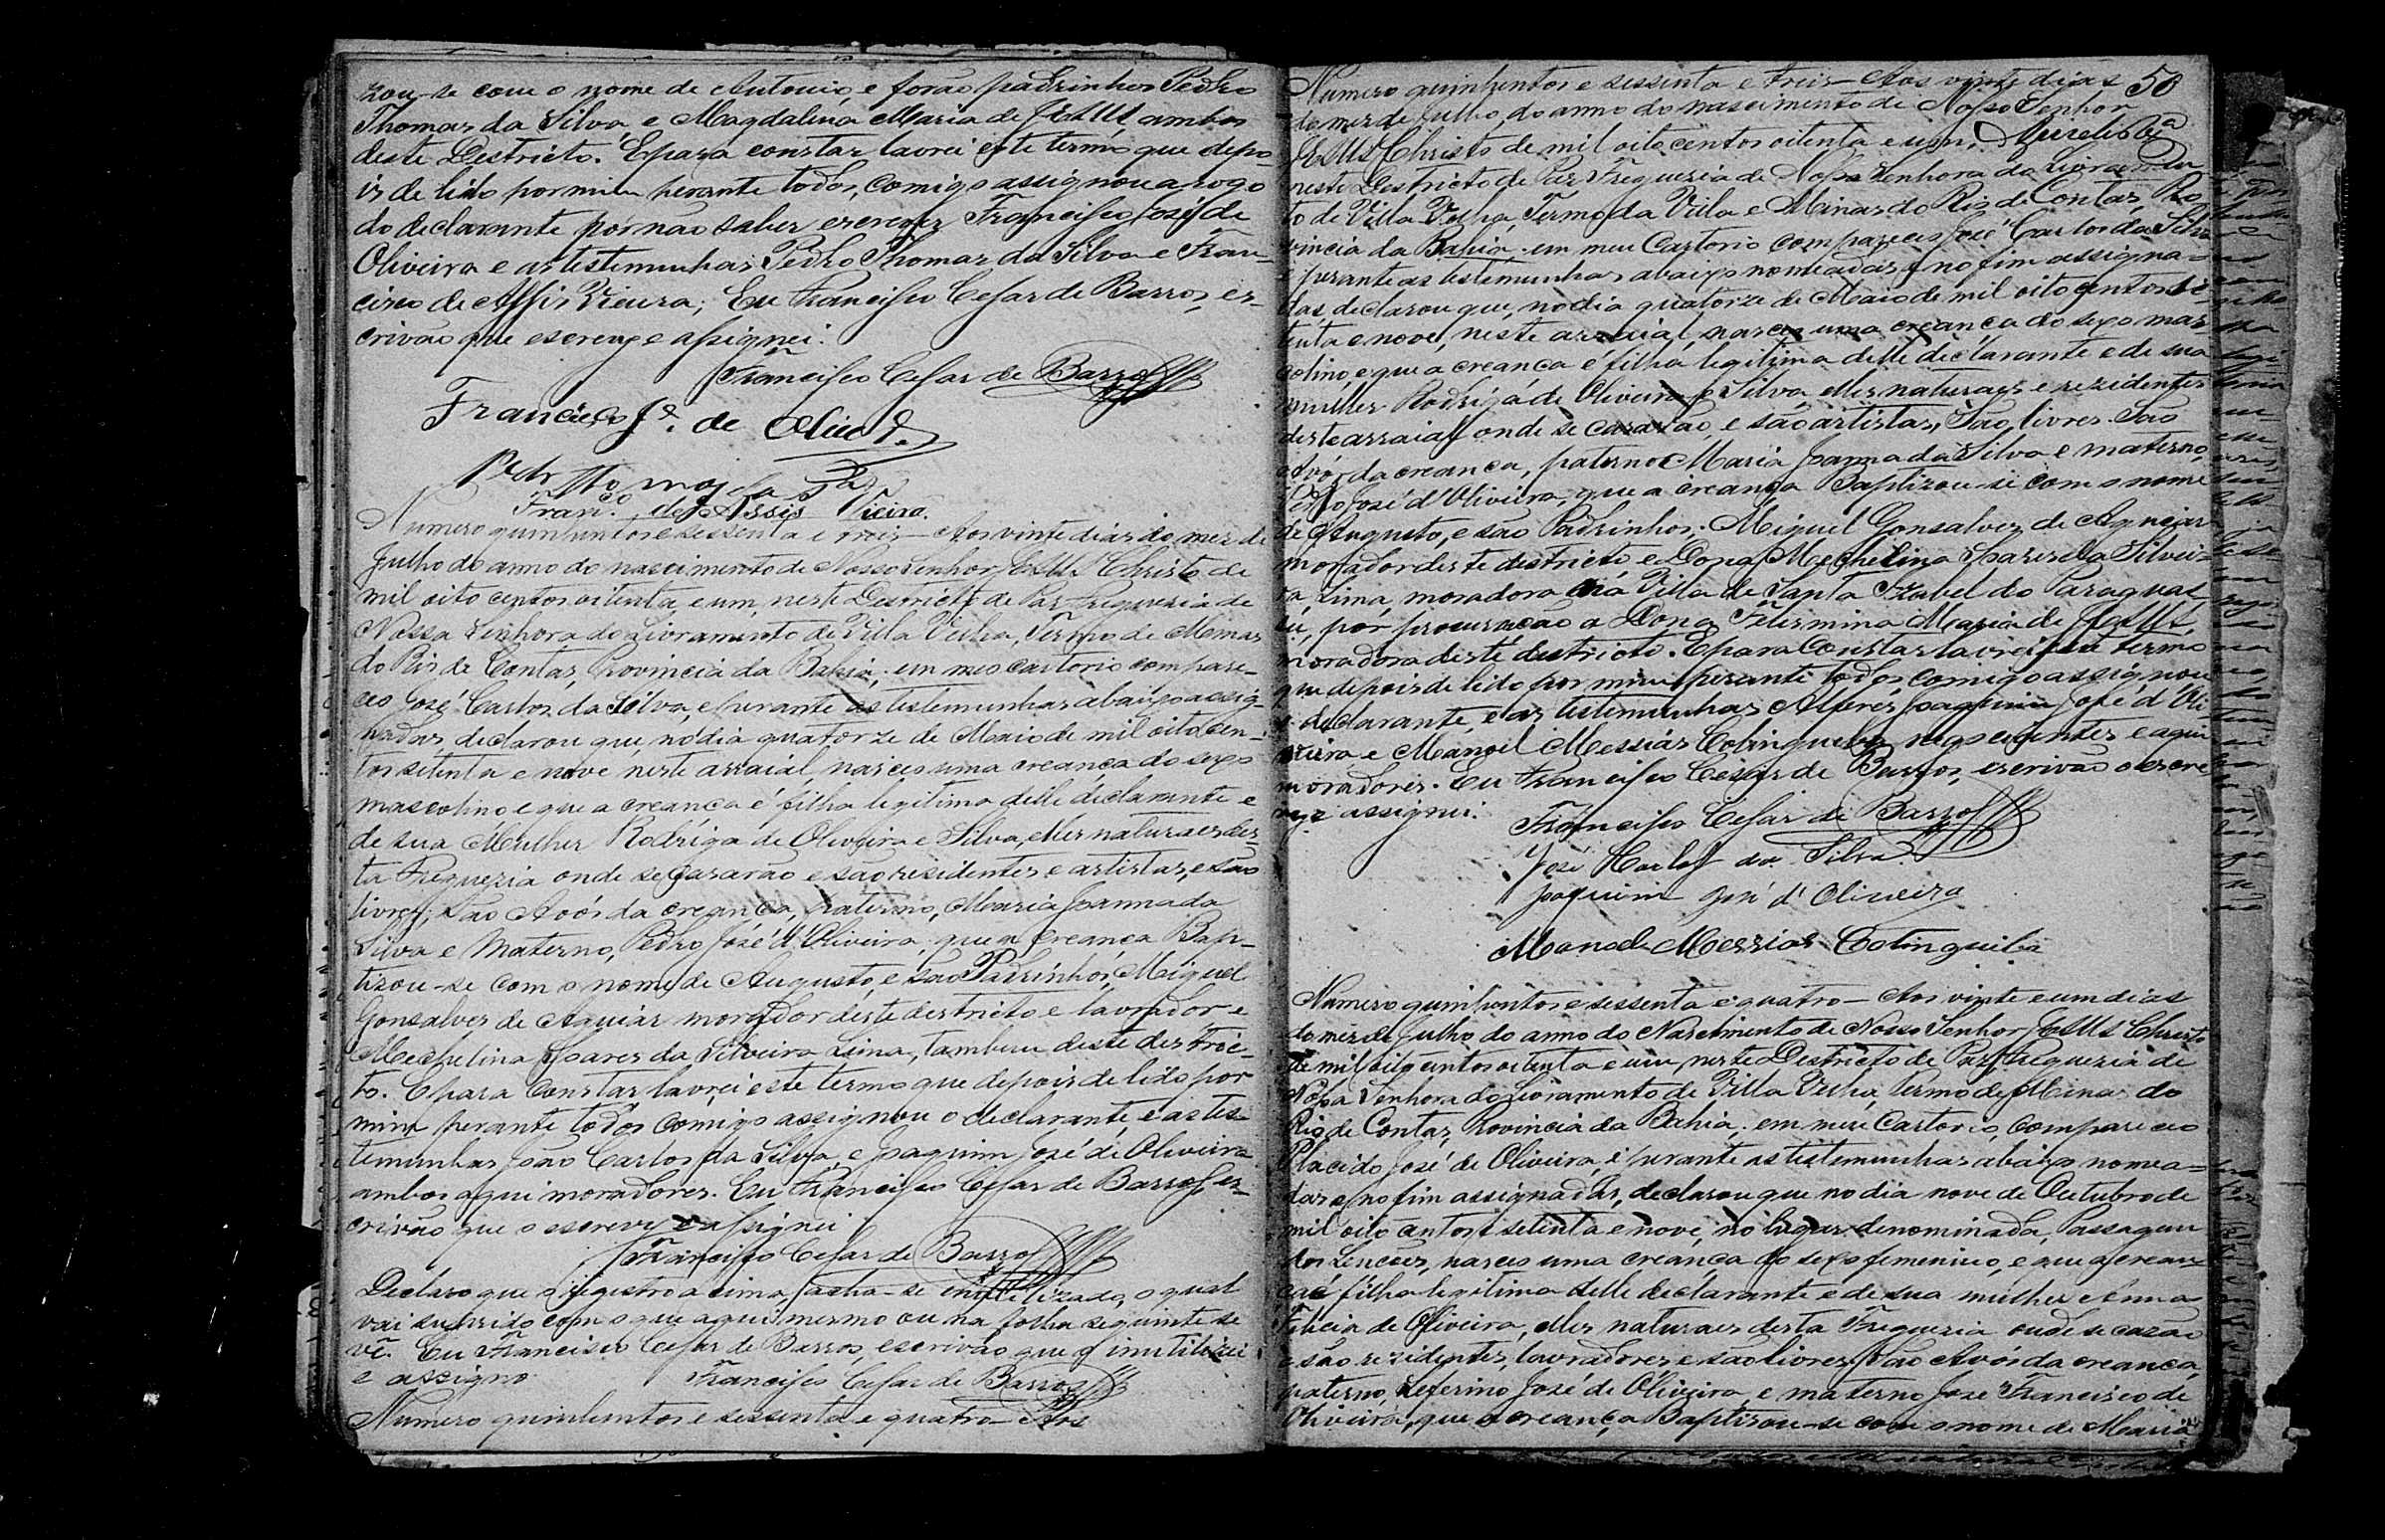 zou-se com o nome de Antonio, e forão padrinhos Pedro
Thomas da Silva e Magdalina Maria de JESUS, ambos
deste Destricto. E para constar lavrei este termo que depo-
is de lido por mim perante todos, comigo assignou a rogo
do declarante por não saber escrever Francisco José de
Oliveira e as testimunhas Pedro Thomas da Silva e Fran-
cisco de Assis Vieira; Eu Francisco Cesar de Barros, es-
crivão que escrevy e assignei.
Francisco Cesar de Barros
Francisco Je. de Olivr.
Pedro Thomas da Sa
Franco. de Assis Vieira.
Numero quinhentos e sessenta e treis - Aos vinte dias do mez de
Julho do anno do nascimento de Nosso Senhor JESUS Christo de
mil oito centos oitenta e um, neste Destricto de Paz Freguezia de
Nossa Senhora do Livramento de Villa Velha, Termo de Minas
do Rio de Contas, Provincia da Bahia; em meo cartorio compare-
ceo José Carlos da Silva, e perante as testemunhas abaixo assig-
nadas, declarou que, no dia quatorze de Maio de mil oito cen-
tos setenta e nove neste arraial, nasceo uma creança do sexo
mascolino e que a creança é filha legitima delle declarante e
de sua Mulher Rodriga de Oliveira e Silva, elles naturaes des-
ta Freguezia onde se casarão e são residentes e artistas, e são
livres; São Avós da creança, paterno, Maria Joanna da
Silva e Materno, Pedro José d'Oliveira, que a creança Bap-
tizou-se com o nome de Augusto, e são Padrinhos, Miguel
Gonsalves de Aguiar morador deste destricto e lavrador e
Mechelina Soares da Silveira Lima, tambem deste destric-
to. E para constar lavrei este termo que depois de lido por
mim perante todos comigo assignou o declarante, e as tes-
temunhas João Carlos da Silva, e Joaquim José de Oliveira
ambos aqui moradores. Eu Francisco Cesar de Barros, es-
crivão que o escrevi e assignei
Francisco Cesar de Barros
Declaro que o registro acima, acha-se inutilizado, o qual
vai suprido com o que aqui mesmo ou na folha seguinte se
vê. Eu Francisco Cesar de Barros, escrivão que o inutilizei
e assigno Francisco Cesar de Barros
Numero quinhentos e sessenta e quatro - Aos
50
Numero quinhentos e sessenta e treis - Aos vinte dias
do mez de Julho, do anno do nascimento de Nosso Senhor
JESUS Christo de mil oito centos oitenta e um,
neste Destricto de Paz Freguezia de Nossa Senhora do Livramen-
to de Villa Velha, Termo da Villa e Minas do Rio de Contas, Pro-
vincia da Bahia em meu Cartorio compareceo José Carlos da Silva
e perante as testemunhas abaixo nomeadas e no fim assigna-
das, declarou que, no dia quatorze de Maio de mil oito centos se-
tenta e nove, neste arraial nasceo uma creança do sexo mas-
colino, e que a creança é filha legitima delle declarante e de sua
mulher Rodriga de Oliveira e Silva, elles naturaes e rezidentes
deste arraial onde se casarão, e são artistas, São livres. São
Avós da creança, paterno Maria Joanna da Silva e materno,
Pedro José d'Oliveira, que a creança Baptizou-se com o nome
de Augusto, e são Padrinhos; Miguel Gonsalves de Aguiar
morador deste destricto e Dona Mechelina Soares da Silvei-
ra Lima, moradora na Villa de Santa Izabel do Paraguas-
sú, por procuração a Dona Fermina Maria de JESUS,
moradora deste destricto. E para Constar lavrei este termo
que depois de lido por mim perante todos, comigo assignou
o declarante, e as testemunhas Alferes Joaquim José d'Oli-
veira e Manoel Messias Cotinguiba negociantes e aqui
moradores. Eu Francisco Cesar de Barros, escrivão o escre-
vy e assignei.
Francisco Cesar de Barros
José Carlos da Silva
Joaquim José d'Oliveira
Manoel Messias Cotinguiba
Numero quinhentos e sessenta e quatro - Aos vinte e um dias
do mez de Julho do anno do Nascimento de Nosso Senhor JESUS Christo
de mil oito centos oitenta e um, neste Destricto de Paz Freguezia de
Nossa Senhora do Livramento de Villa Velha, Termo de Minas do
Rio de Contas, Provincia da Bahia; em meu Cartorio, compareceo
Placido José de Oliveira, e perante as testemunhas abaixo nomea-
das e no fim assignadas, declarou que no dia nove de Outubro de
mil oito centos e setenta e nove, no lugar denominada, Passagem
dos Lençóes, nasceo uma creança do sexo femenino, e que a crean-
ça é filha legitima delle declarante e de sua mulher Anna
de Oliveira, elles naturaes desta Freguezia onde se cazão
e são rezidentes, lavradores, e são livres. São Avós da creança
paterno, Zeferino José de Oliveira, e materno José Francisco de
Oliveira, que a creança Baptizou-se com o nome de Maria